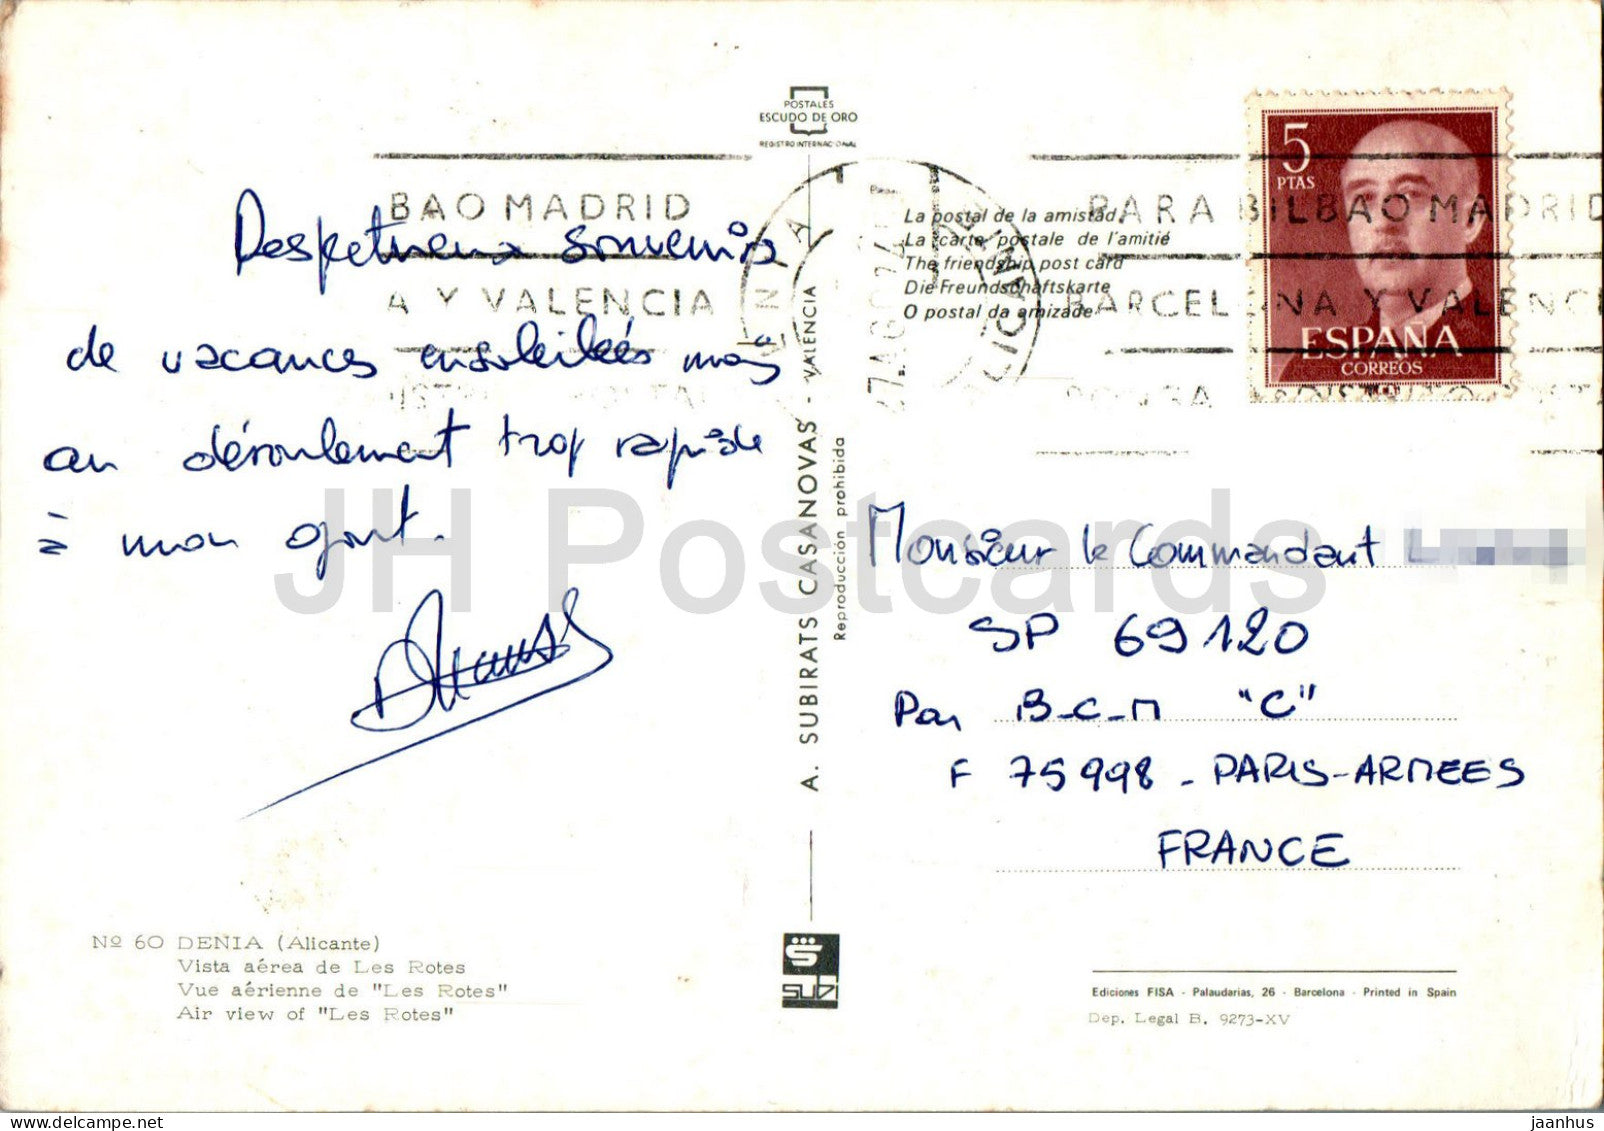 POSTALES
ESCUDO DE ORO
REGISTRO INTERNACIONAL
BAO MADRID
A Y VALENCIA
Respetueux souvenirs
de vacances ensoleillées mais
au déroulement trop rapide
à mon goût.
La postal de la amistad
La carte postale de l'amitié
The friendship post card
Die Freundschaftskarte
O postal da amizade
PARA BILBAO MADRID
BARCELONA Y VALENC
5
PTAS
ESPAÑA
CORREOS
A. SUBIRATS CASANOVAS - VALENCIA
Reproducción prohibida
Monsieur le Commandant L
SP 69120
Par B-C-M "C"
F 75998 - PARIS-ARMEES
FRANCE
Nº 60 DENIA (Alicante)
Vista aérea de Les Rotes
Vue aérienne de "Les Rotes"
Air view of "Les Rotes"
subi
Ediciones FISA - Palaudarias, 26 - Barcelona - Printed in Spain
Dep. Legal B. 9273-XV
JH Postcards
jaanhus